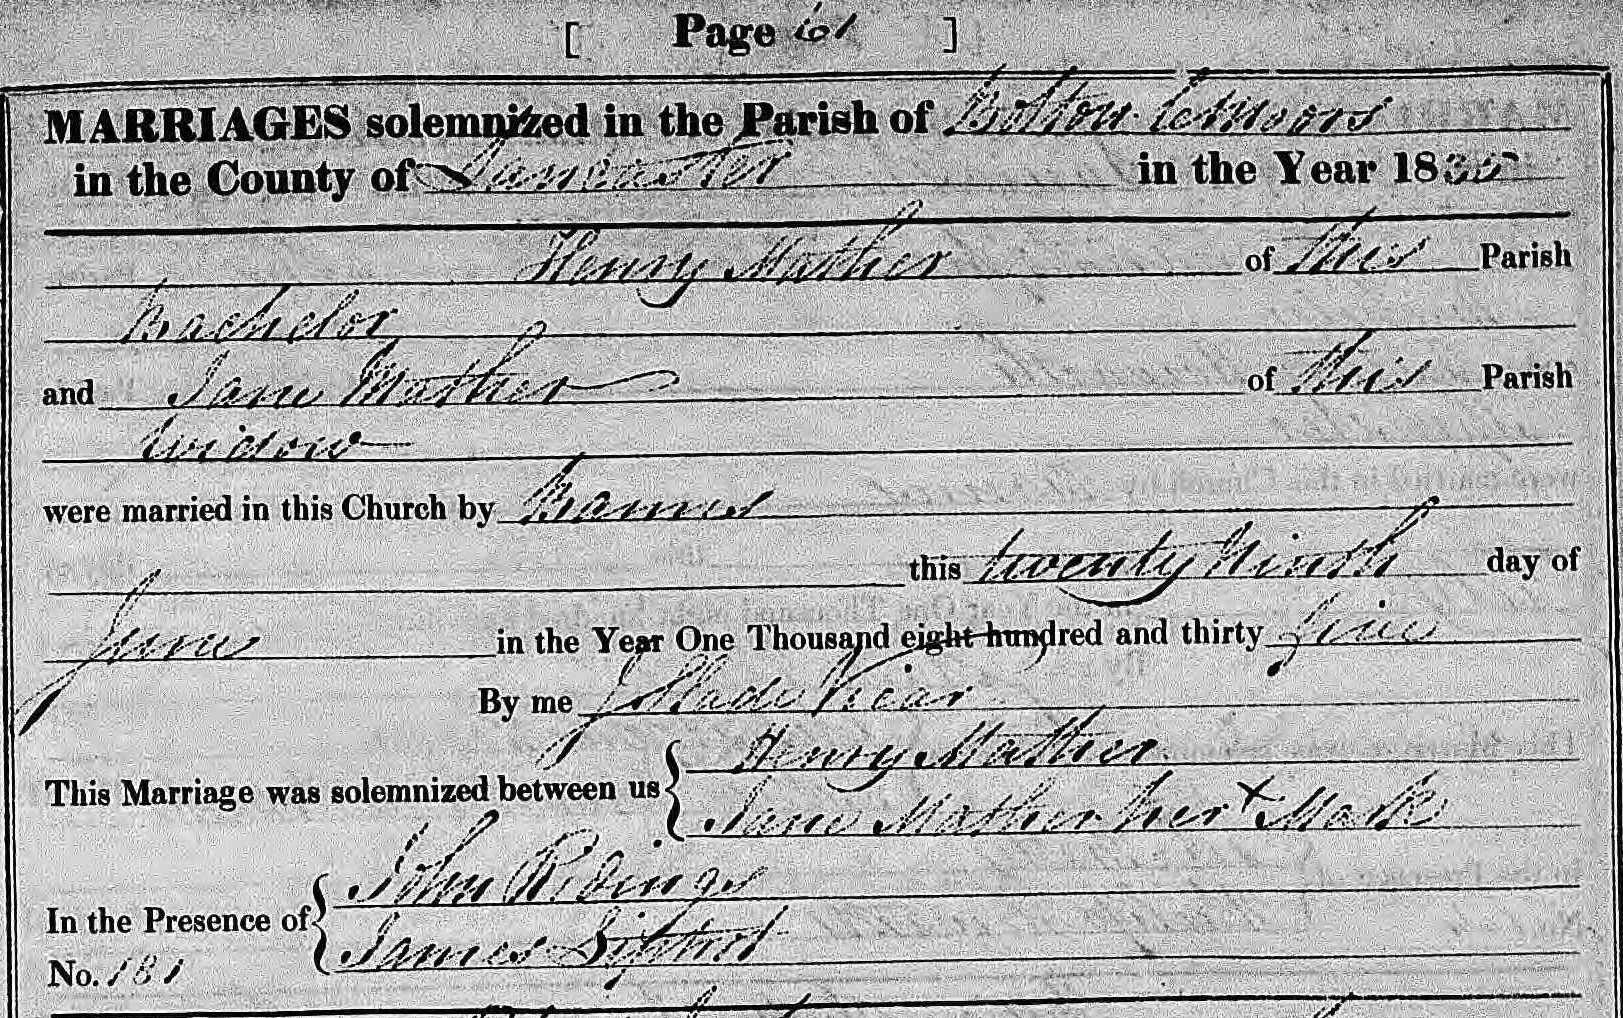 [ Page 61 ]
MARRIAGES solemnized in the Parish of Bolton le Moors
in the County of Lancaster in the Year 1835
Henry Mather of this Parish
Bachelor
and Jane Mather of this Parish
Widow
were married in this Church by Banns
this twenty Ninth day of
June in the Year One Thousand eight hundred and thirty five
By me J Slade Vicar
This Marriage was solemnized between us Henry Mather
Jane Mather her x Mark
In the Presence of John Ridings
James
No. 181